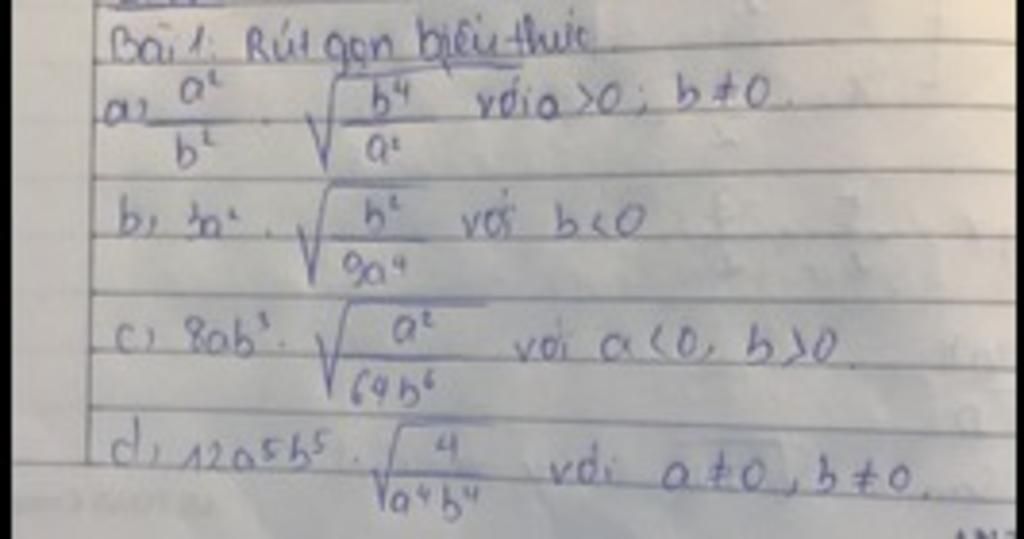 Bài 1: Rút gọn biểu thức
a, a²/b² . √(b⁴/a²) với a > 0; b ≠ 0.
b, 3a² . √(b²/9a⁴) với b < 0
c, 8ab³ . √(a²/64b⁶) với a < 0, b > 0
d, 12a⁵b⁵ . √(4/a⁴b⁴) với a ≠ 0, b ≠ 0.